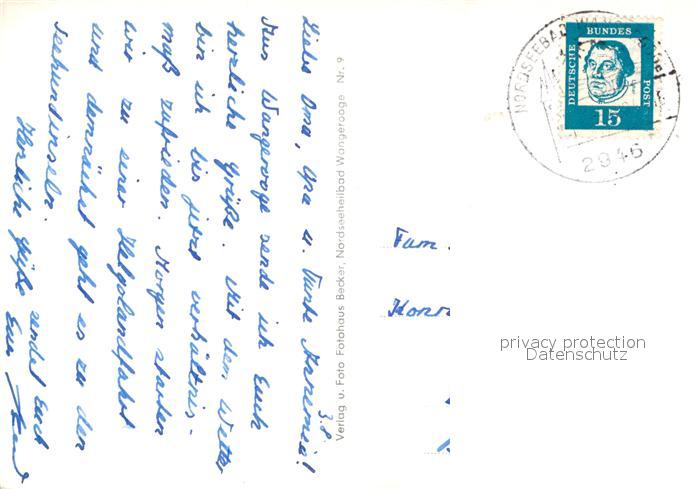 3.8.
Liebe Oma, Opa u. Tante Annemie!
Aus Wangerooge sende ich Euch
herzliche Grüße. Mit dem Wetter
bin ich bis jetzt verhältnis-
mäß zufrieden. Morgen starten
wir zu einer Helgolandfahrt
und demnächst geht es zu den
Seehundinseln.
Herzliche Grüße sendet Euch
Euer
Verlag u. Foto Fotohaus Becker, Nordseeheilbad Wangerooge Nr. 9
NORDSEEBAD
2946
DEUTSCHE BUNDES POST
15
Fam.
privacy protection
Datenschutz